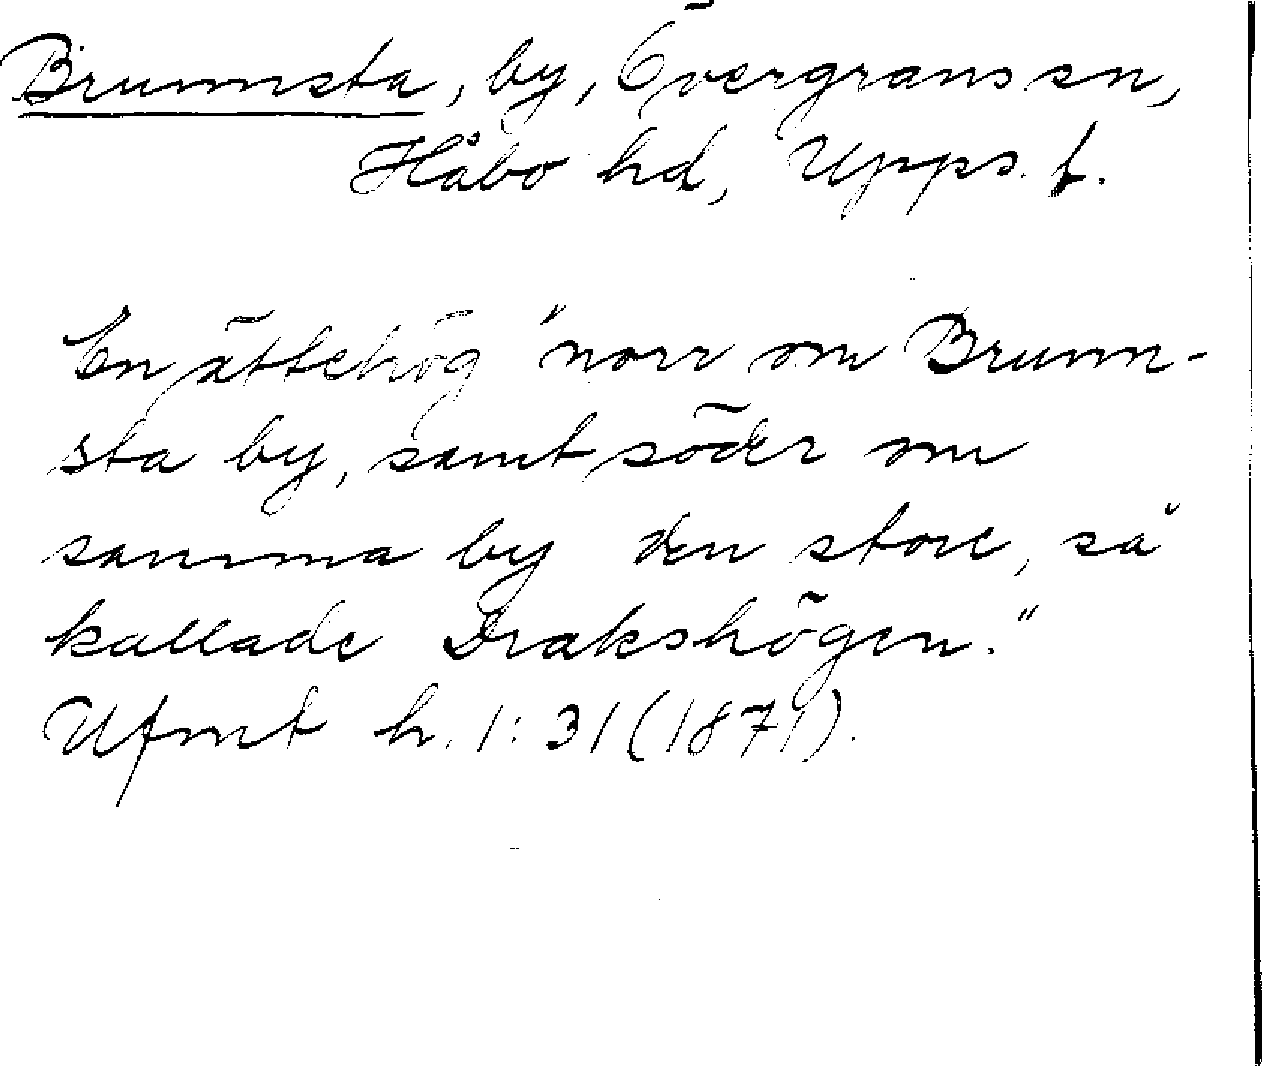 Brunnsta, by, Övergrans sn,
Håbo hd, Upps. l.
En ättehög "norr om Brunn-
sta by, samt söder om
samma by den store, så
kallade Drakshögen."
Ufmt h. 1: 31 (1871).